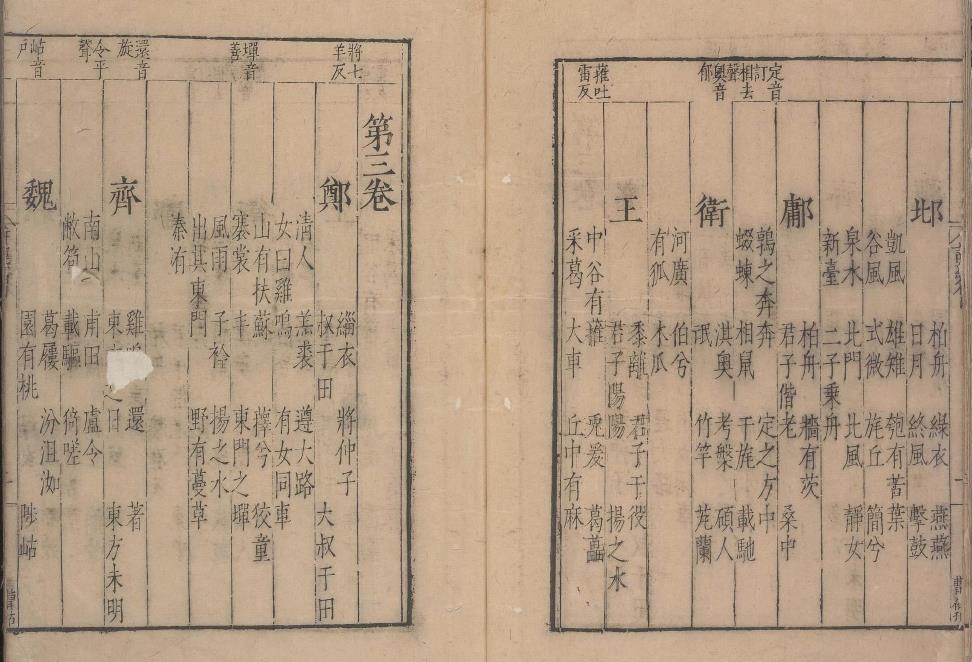 定音訂
相去聲
奧音郁
蓷吐雷反
邶
柏舟 綠衣 燕燕
日月 終風 擊鼓
凱風 雄雉 匏有苦葉
谷風 式微 旄丘 簡兮
泉水 北門 北風 靜女
新臺 二子乘舟
鄘
柏舟 牆有茨
君子偕老 桑中
鶉之奔奔 定之方中
蝃蝀 相鼠 干旄 載馳
衛
淇奧 考槃 碩人
氓 竹竿 芄蘭
河廣 伯兮
有狐 木瓜
王
黍離 君子于役
君子陽陽 揚之水
中谷有蓷 兔爰 葛藟
采葛 大車 丘中有麻
將七羊反
墠音善
還音旋
令平聲
岵音戶
第三卷
鄭
緇衣 將仲子
叔于田 大叔于田
清人 羔裘 遵大路
女曰雞鳴 有女同車
山有扶蘇 蘀兮 狡童
褰裳 丰 東門之墠
風雨 子衿 揚之水
出其東門 野有蔓草
溱洧
齊
雞 還 著
東 之日 東方未明
南山 甫田 盧令
敝笱 載驅 猗嗟
魏
葛屨 汾沮洳
園有桃 陟岵